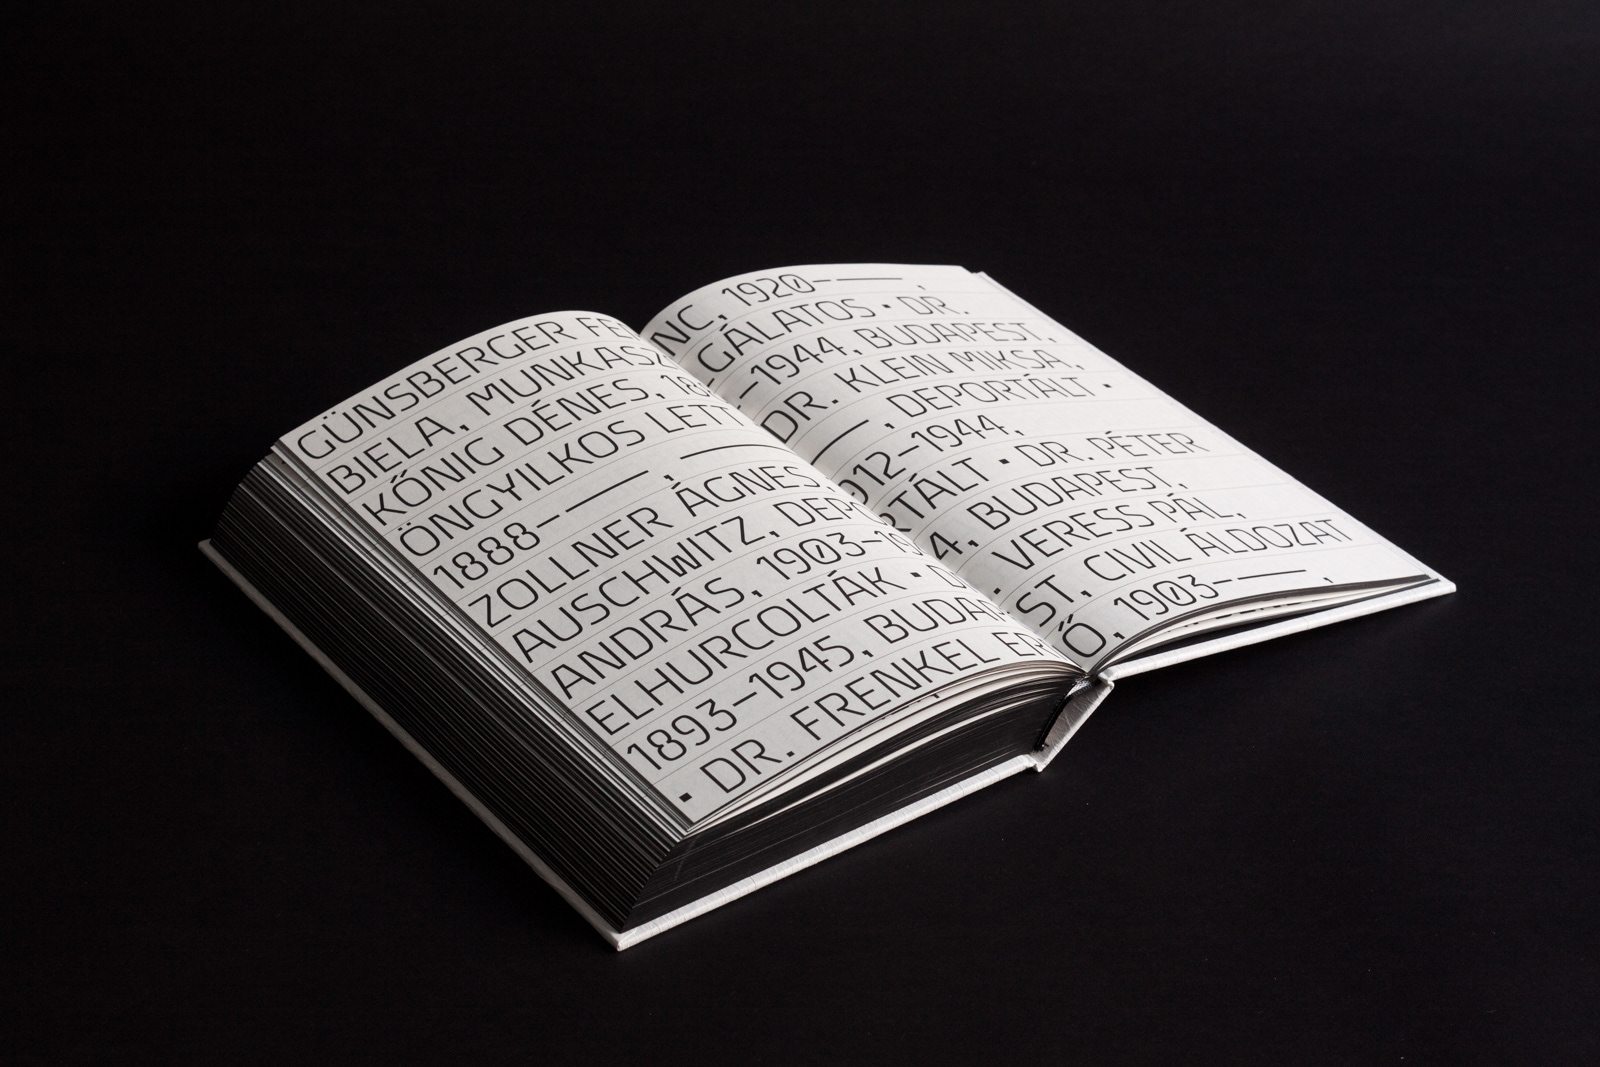 GÜNSBERGER
BIELA, MUNKASZ
KŐNIG DÉNES,
ÖNGYILKOS LETT
1888–——, ——
ZOLLNER ÁGNES
AUSCHWITZ, DEP
ANDRÁS, 1903–19
ELHURCOLTÁK ▪
1893–1945, BUDAP
▪ DR. FRENKEL
NC, 1920–——,
GÁLATOS ▪ DR.
–1944, BUDAPEST,
DR. KLEIN MIKSA,
——, DEPORTÁLT ▪
912–1944,
RTÁLT ▪ DR. PÉTER
4, BUDAPEST,
▪ VERESS PÁL,
ST, CIVIL ÁLDOZAT
Ő, 1903–——,